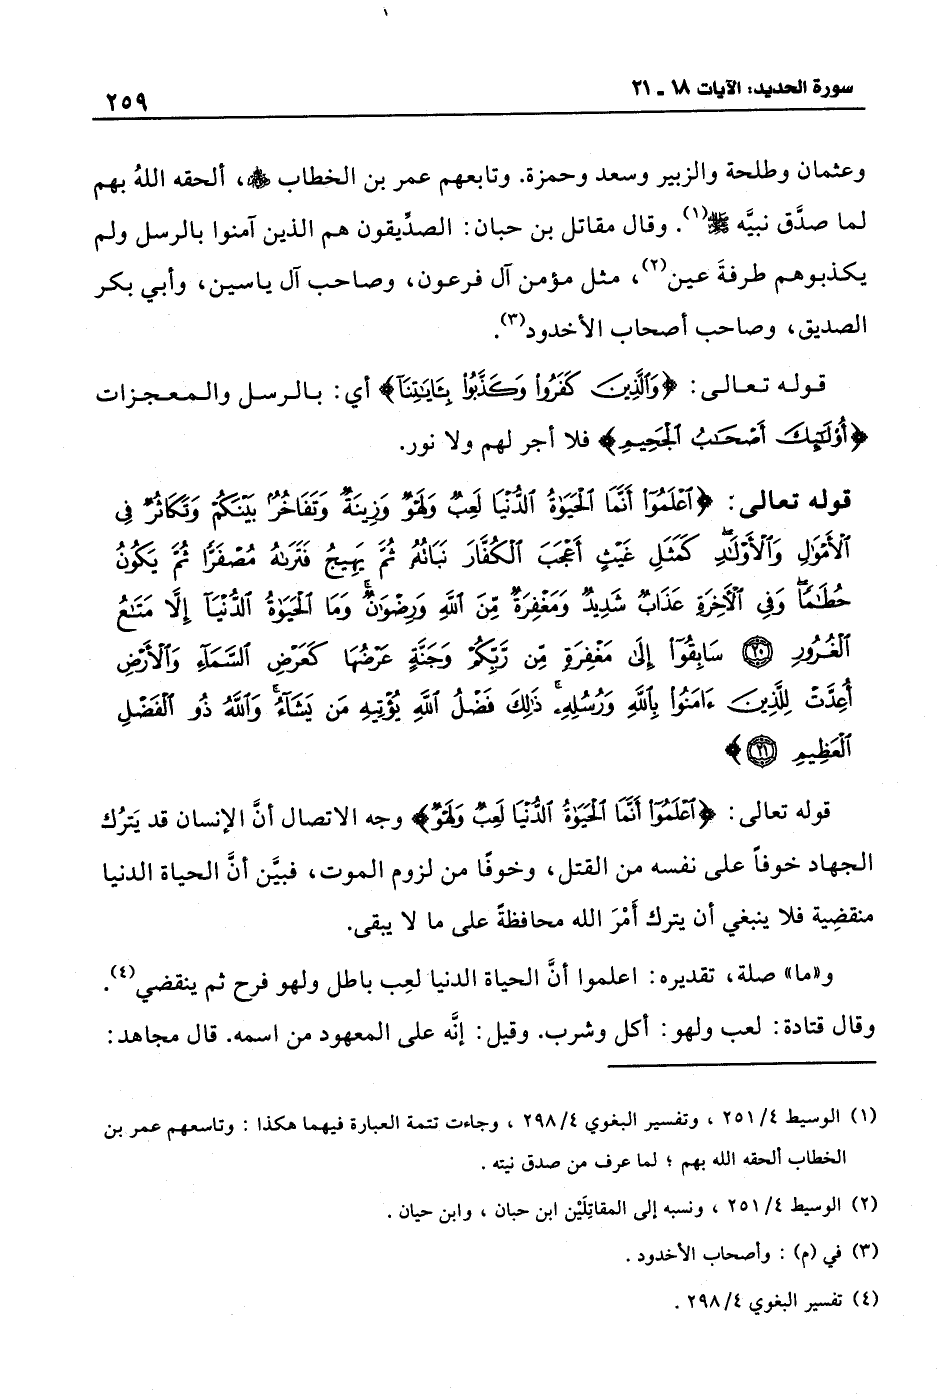 سورة الحديد: الآيات ١٨ - ٢١
٢٥٩
وعثمان وطلحة والزبير وسعد وحمزة. وتابعهم عمر بن الخطاب ﷺ، ألحقه اللهُ بهم
لما صدَّق نبيَّه ﷺ(١). وقال مقاتل بن حبان: الصدِّيقون هم الذين آمنوا بالرسل ولم
يكذبوهم طرفةَ عين(٢)، مثل مؤمن آل فرعون، وصاحب آل ياسين، وأبي بكر
الصديق، وصاحب أصحاب الأخدود(٣).
قوله تعالى: ﴿وَٱلَّذِينَ كَفَرُواْ وَكَذَّبُواْ بِـَٔايَٰتِنَآ﴾ أي: بالرسل والمعجزات
﴿أُوْلَٰٓئِكَ أَصْحَٰبُ ٱلْجَحِيمِ﴾ فلا أجر لهم ولا نور.
قوله تعالى: ﴿ٱعْلَمُوٓاْ أَنَّمَا ٱلْحَيَوٰةُ ٱلدُّنْيَا لَعِبٌ وَلَهْوٌ وَزِينَةٌ وَتَفَاخُرٌۢ بَيْنَكُمْ وَتَكَاثُرٌ فِى
ٱلْأَمْوَٰلِ وَٱلْأَوْلَٰدِ ۖ كَمَثَلِ غَيْثٍ أَعْجَبَ ٱلْكُفَّارَ نَبَاتُهُۥ ثُمَّ يَهِيجُ فَتَرَىٰهُ مُصْفَرًّا ثُمَّ يَكُونُ
حُطَٰمًا ۖ وَفِى ٱلْأَخِرَةِ عَذَابٌ شَدِيدٌ وَمَغْفِرَةٌ مِّنَ ٱللَّهِ وَرِضْوَٰنٌ ۚ وَمَا ٱلْحَيَوٰةُ ٱلدُّنْيَآ إِلَّا مَتَٰعُ
ٱلْغُرُورِ ٢٠ سَابِقُوٓاْ إِلَىٰ مَغْفِرَةٍ مِّن رَّبِّكُمْ وَجَنَّةٍ عَرْضُهَا كَعَرْضِ ٱلسَّمَآءِ وَٱلْأَرْضِ
أُعِدَّتْ لِلَّذِينَ ءَامَنُواْ بِٱللَّهِ وَرُسُلِهِۦ ۚ ذَٰلِكَ فَضْلُ ٱللَّهِ يُؤْتِيهِ مَن يَشَآءُ ۚ وَٱللَّهُ ذُو ٱلْفَضْلِ
ٱلْعَظِيمِ ٢١﴾
قوله تعالى: ﴿ٱعْلَمُوٓاْ أَنَّمَا ٱلْحَيَوٰةُ ٱلدُّنْيَا لَعِبٌ وَلَهْوٌ﴾ وجه الاتصال أنَّ الإنسان قد يَترُك
الجهاد خوفاً على نفسه من القتل، وخوفًا من لزوم الموت، فبيَّن أنَّ الحياة الدنيا
منقضِية فلا ينبغي أن يترك أَمْرَ الله محافظةً على ما لا يبقى.
و«ما» صلة، تقديره: اعلموا أنَّ الحياة الدنيا لعِب باطل ولهو فرح ثم ينقضي(٤).
وقال قتادة: لعب ولهو: أكل وشرب. وقيل: إنَّه على المعهود من اسمه. قال مجاهد:
(١) الوسيط ٢٥١/٤ ، وتفسير البغوي ٢٩٨/٤ ، وجاءت تتمة العبارة فيهما هكذا : وتاسعهم عمر بن
الخطاب ألحقه الله بهم ؛ لما عرف من صدق نيته .
(٢) الوسيط ٢٥١/٤ ، ونسبه إلى المقاتِلَيْن ابن حبان ، وابن حيان .
(٣) في (م) : وأصحاب الأخدود .
(٤) تفسير البغوي ٢٩٨/٤ .